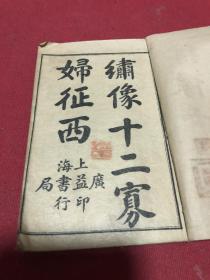 繡像十二寡
婦征西
上海廣益書局印行